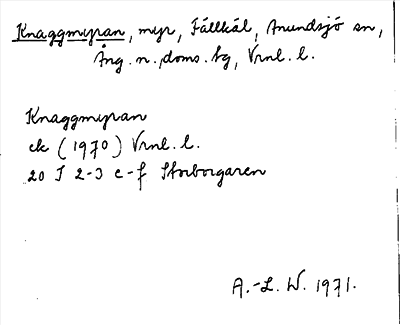 Knaggmyran, myr, Fällkäl, Anundsjö sn,
Ång. n. doms. tg, Vrnl. l.
Knaggmyran
ek (1970) Vrnl. l.
20 I 2-3 e-f Storborgaren
A.-L. W. 1971.